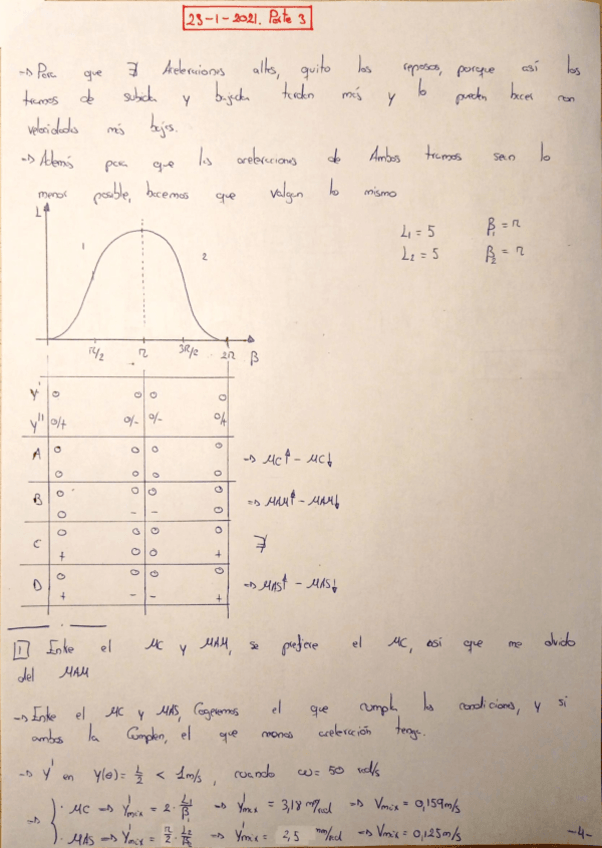 23-1-2021. Parte 3
→ Para que ∄ Aceleraciones altas, quito los reposos, porque así los
tramos de subida y bajada tardan más y lo pueden hacer con
velocidades más bajas.
→ Además para que las aceleraciones de Ambos tramos sean lo
menor posible, hacemos que valgan lo mismo
L₁ = 5 β₁ = π
L₂ = 5 β₂ = π
L
1
2
π/2 π 3π/2 2π β
Y' 0 0 0 0
Y'' 0/+ 0/- 0/- 0/+
A 0 0 0 0
0 0 0 0 → MC↑ - MC↓
B 0 0 0 0
0 - - 0 → MAM↑ - MAM↓
C 0 0 0 0
+ 0 0 + ∄
D 0 0 0 0
+ - - + → MAS↑ - MAS↓
1 Entre el MC y MAM, se prefiere el MC, así que me olvido
del MAM
→ Entre el MC y MAS, Cogeremos el que cumpla las condiciones, y si
ambos la Cumplen, el que menos aceleración tenga.
→ Y' en Y(θ) = L/2 < 1m/s, cuando ω = 50 rad/s
→ { · MC ⇒ Y'máx = 2 · L₁/β₁ → Y'máx = 3,18 mm/rad ⇒ Vmáx = 0,159 m/s
· MAS ⇒ Y'máx = π/2 · L₂/β₂ → Y'máx = 2,5 mm/rad ⇒ Vmáx = 0,125 m/s
-4-